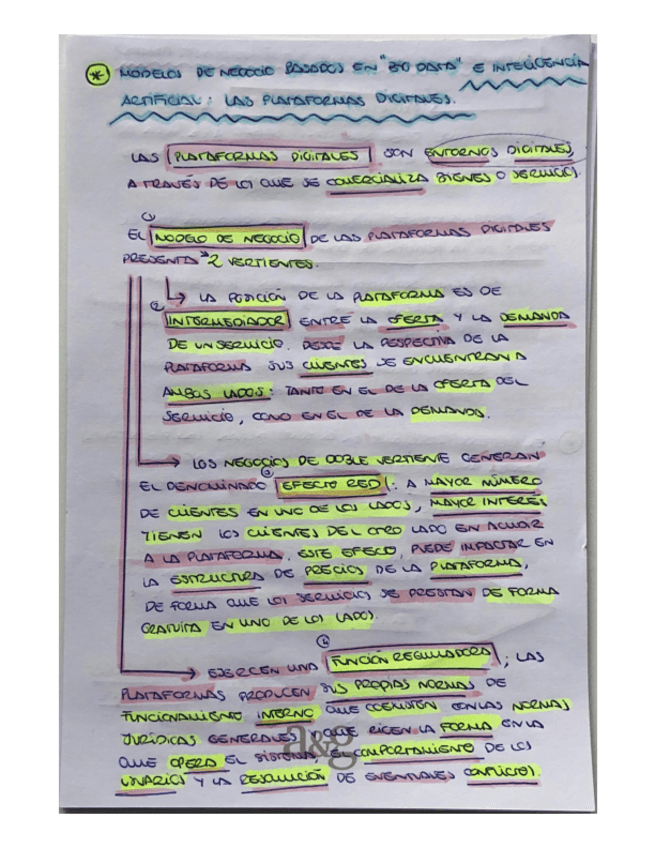 * MODELOS DE NEGOCIO BASADOS EN "BIG DATA" E INTELIGENCIA
ARTIFICIAL: LAS PLATAFORMAS DIGITALES.
LAS PLATAFORMAS DIGITALES SON ENTORNOS DIGITALES,
A TRAVÉS DE LOS QUE SE COMERCIALIZA BIENES O SERVICIOS.
1
EL MODELO DE NEGOCIO DE LAS PLATAFORMAS DIGITALES
PRESENTA "2 VERTIENTES.
→ LA POSICIÓN DE LA PLATAFORMA ES DE
2
INTERMEDIADOR ENTRE LA OFERTA Y LA DEMANDA
DE UN SERVICIO. DESDE LA PERSPECTIVA DE LA
PLATAFORMA SUS CLIENTES SE ENCUENTRAN A
AMBOS LADOS: TANTO EN EL DE LA OFERTA DEL
SERVICIO, COMO EN EL DE LA DEMANDA.
→ LOS NEGOCIOS DE DOBLE VERTIENTE GENERAN
3
EL DENOMINADO EFECTO RED: A MAYOR NÚMERO
DE CLIENTES EN UNO DE LOS LADOS, MAYOR INTERÉS
TIENEN LOS CLIENTES DEL OTRO LADO EN ACUDIR
A LA PLATAFORMA. ESTE EFECTO, PUEDE IMPACTAR EN
LA ESTRUCTURA DE PRECIOS DE LA PLATAFORMA,
DE FORMA QUE LOS SERVICIOS SE PRESTAN DE FORMA
GRATUITA EN UNO DE LOS LADOS.
4
→ EJERCEN UNA FUNCIÓN REGULADORA; LAS
PLATAFORMAS PRODUCEN SUS PROPIAS NORMAS DE
FUNCIONAMIENTO INTERNO QUE COEXISTEN CON LAS NORMAS
JURÍDICAS GENERALES, QUE RIGEN LA FORMA EN LA
QUE OPERA EL SISTEMA, EL COMPORTAMIENTO DE LOS
USUARIOS Y LA RESOLUCIÓN DE EVENTUALES CONFLICTOS.
a&g